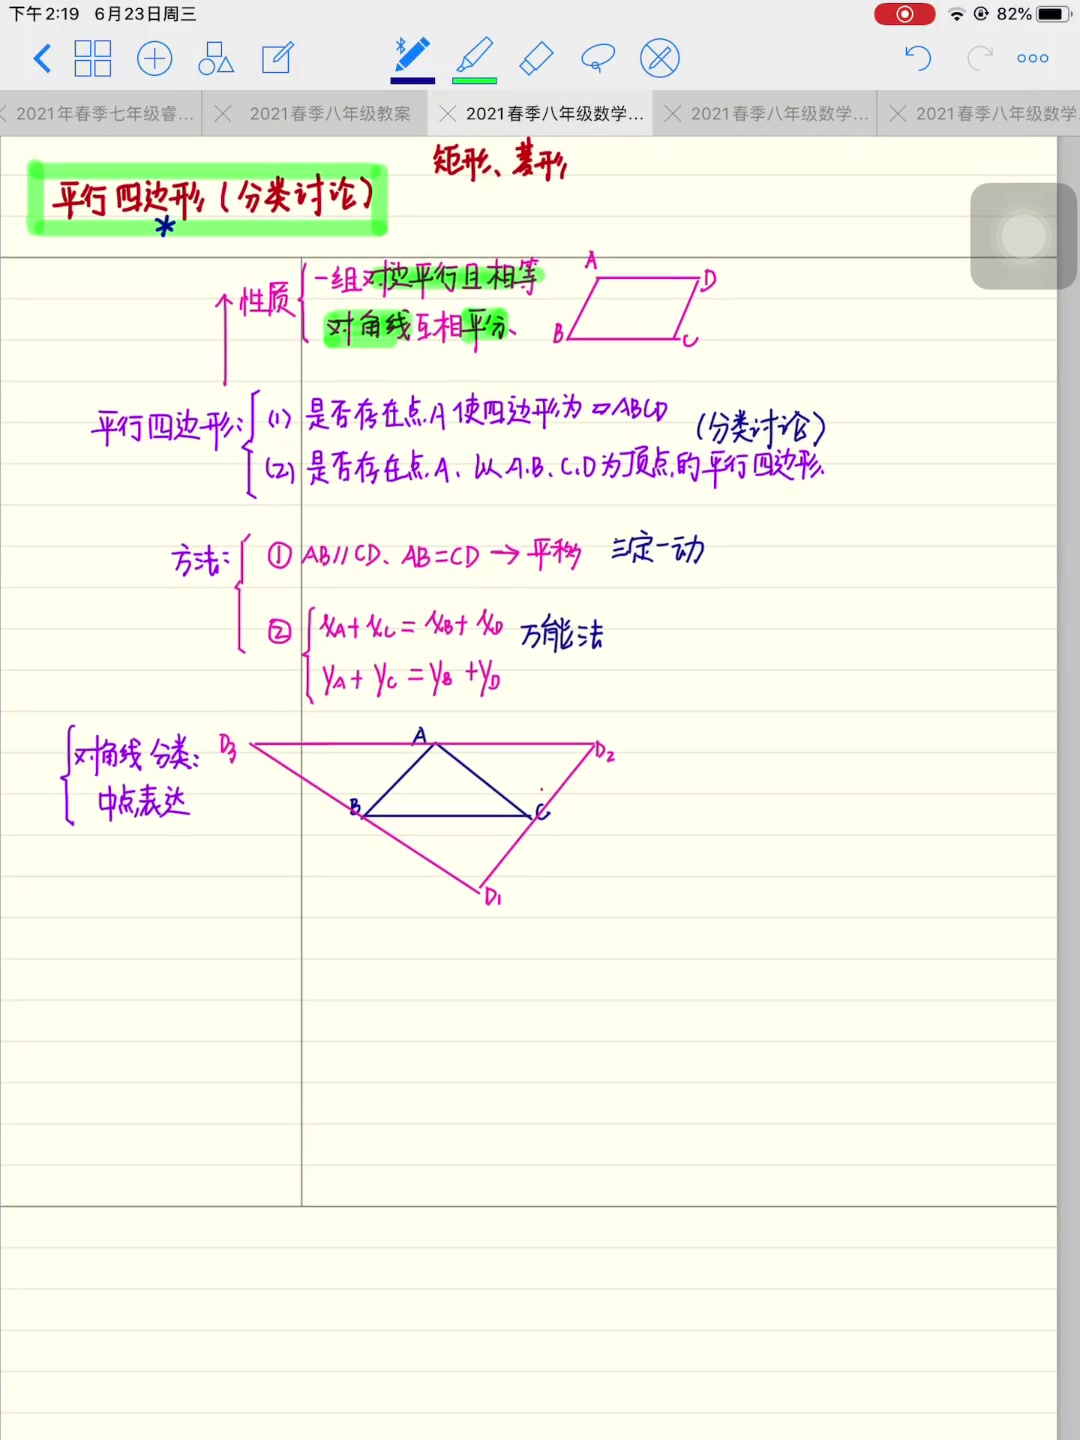 下午2:19 6月23日周三 82%
2021年春季七年级睿... 2021春季八年级教案 2021春季八年级数学... 2021春季八年级数学... 2021春季八年级数学
矩形、菱形
平行四边形(分类讨论)
*
性质 一组对边平行且相等
对角线互相平分、
A D
B C
平行四边形: (1) 是否存在点A使四边形为▱ABCD
(分类讨论)
(2) 是否存在点A、以A.B.C.D为顶点的平行四边形.
方法: ① AB//CD、AB=CD → 平移 三定一动
② xA+xC=xB+xD 万能法
yA+yC=yB+yD
对角线分类: D3 A D2
中点表达 B C
D1